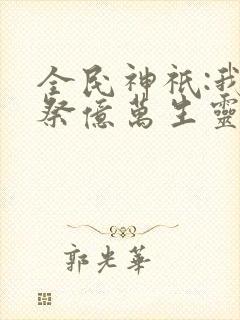 全民神祇:我
祭億萬生靈
郭光華